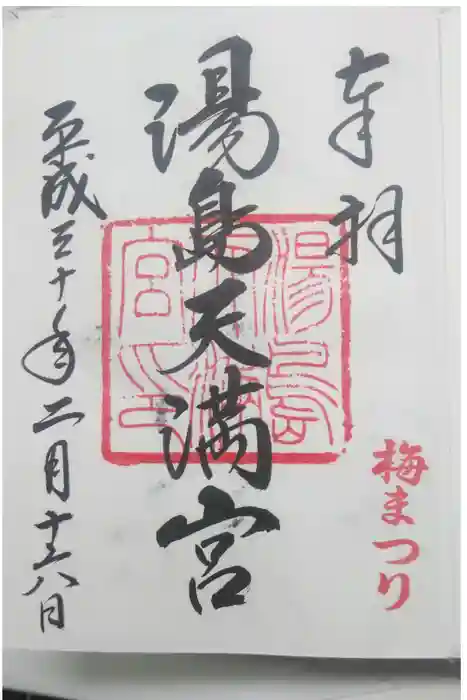 奉拝
梅まつり
湯島天満宮
湯島天満宮之印
平成三十年二月十六日